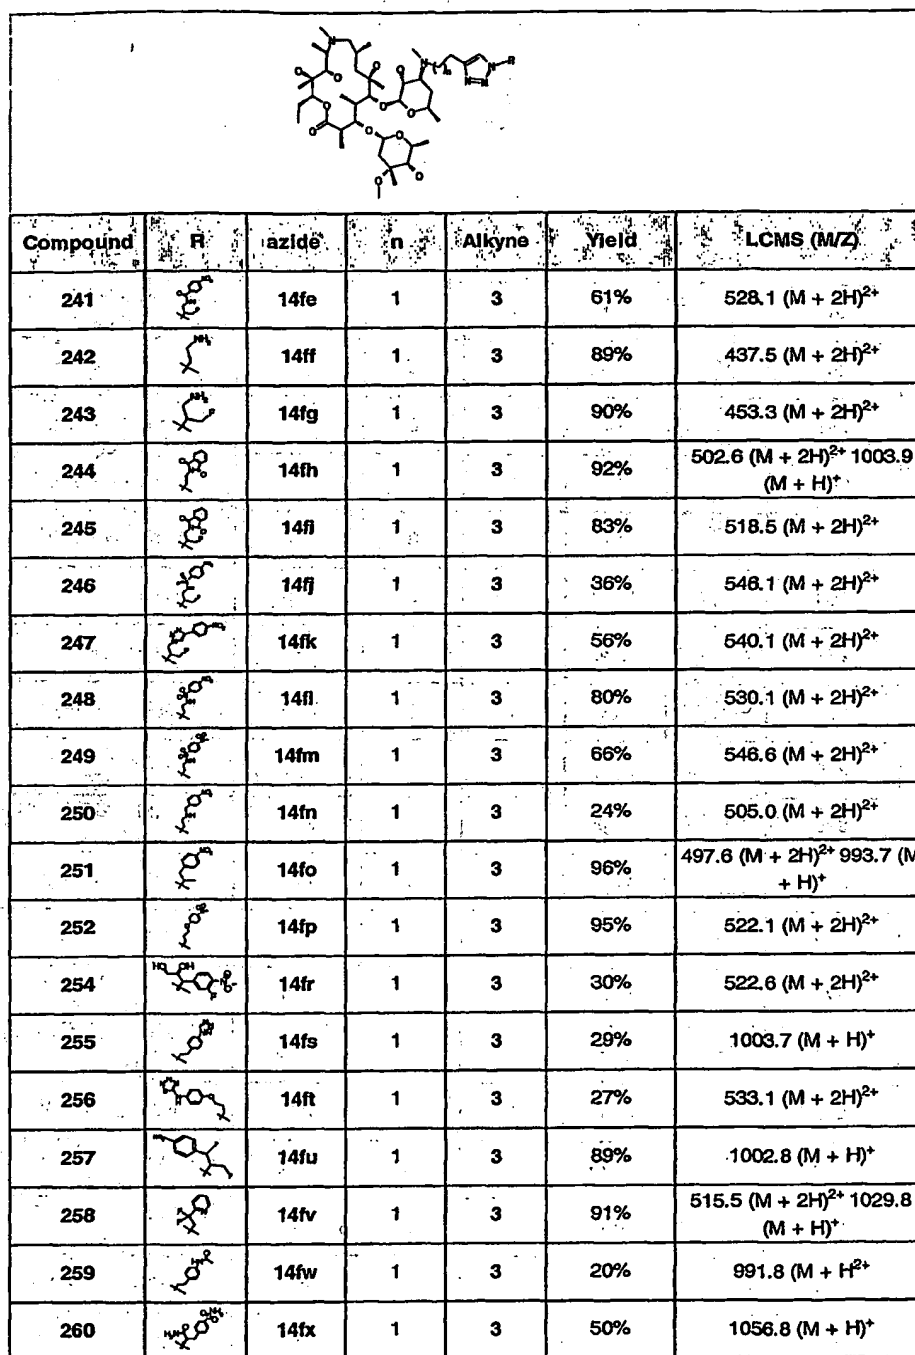 Compound R azide n Alkyne Yield LCMS (M/Z)
241 14fe 1 3 61% 528.1 (M + 2H)²⁺
242 14ff 1 3 89% 437.5 (M + 2H)²⁺
243 14fg 1 3 90% 453.3 (M + 2H)²⁺
244 14fh 1 3 92% 502.6 (M + 2H)²⁺ 1003.9
(M + H)⁺
245 14fi 1 3 83% 518.5 (M + 2H)²⁺
246 14fj 1 3 36% 546.1 (M + 2H)²⁺
247 14fk 1 3 56% 540.1 (M + 2H)²⁺
248 14fl 1 3 80% 530.1 (M + 2H)²⁺
249 14fm 1 3 66% 546.6 (M + 2H)²⁺
250 14fn 1 3 24% 505.0 (M + 2H)²⁺
251 14fo 1 3 96% 497.6 (M + 2H)²⁺ 993.7 (M
+ H)⁺
252 14fp 1 3 95% 522.1 (M + 2H)²⁺
254 14fr 1 3 30% 522.6 (M + 2H)²⁺
255 14fs 1 3 29% 1003.7 (M + H)⁺
256 14ft 1 3 27% 533.1 (M + 2H)²⁺
257 14fu 1 3 89% 1002.8 (M + H)⁺
258 14fv 1 3 91% 515.5 (M + 2H)²⁺ 1029.8
(M + H)⁺
259 14fw 1 3 20% 991.8 (M + H²⁺
260 14fx 1 3 50% 1056.8 (M + H)⁺